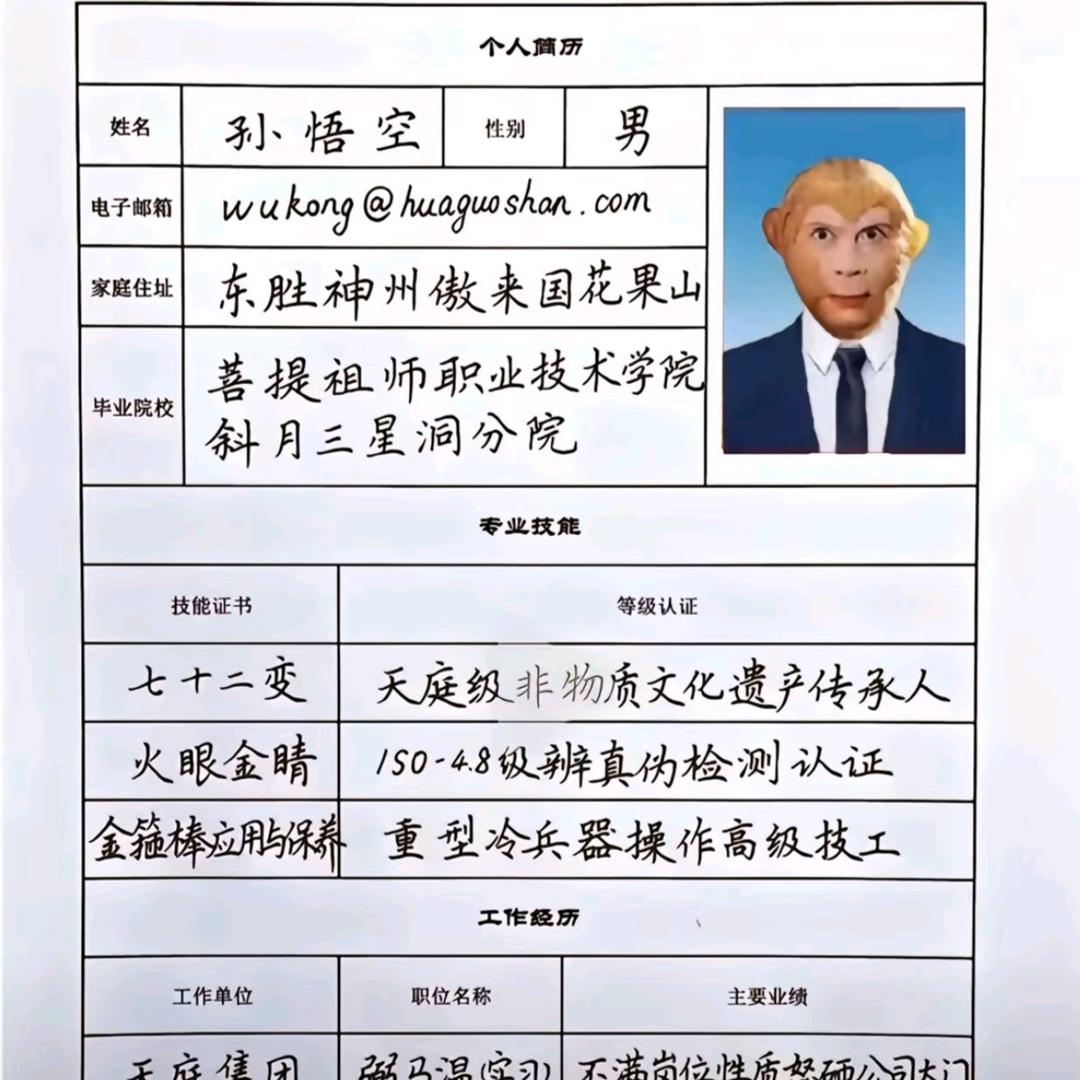 个人简历
姓名 孙悟空 性别 男
电子邮箱 wukong@huaguoshan.com
家庭住址 东胜神州傲来国花果山
毕业院校 菩提祖师职业技术学院
斜月三星洞分院
专业技能
技能证书 等级认证
七十二变 天庭级非物质文化遗产传承人
火眼金睛 ISO-4.8级辨真伪检测认证
金箍棒应用与保养 重型冷兵器操作高级技工
工作经历
工作单位 职位名称 主要业绩
天庭集团 弼马温(实习) 不满岗位性质怒砸公司大门